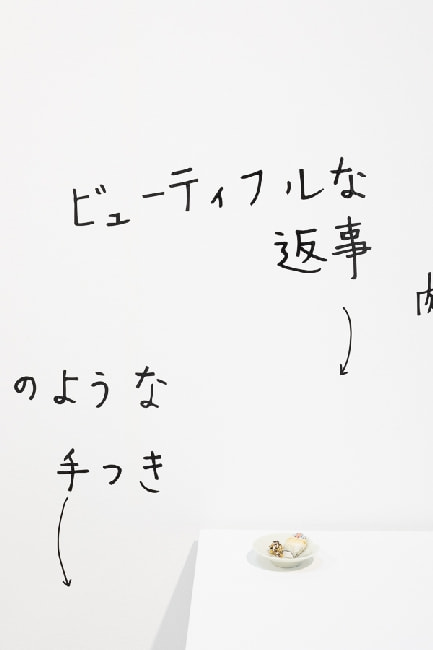 ビューティフルな
返事
のような
手つき